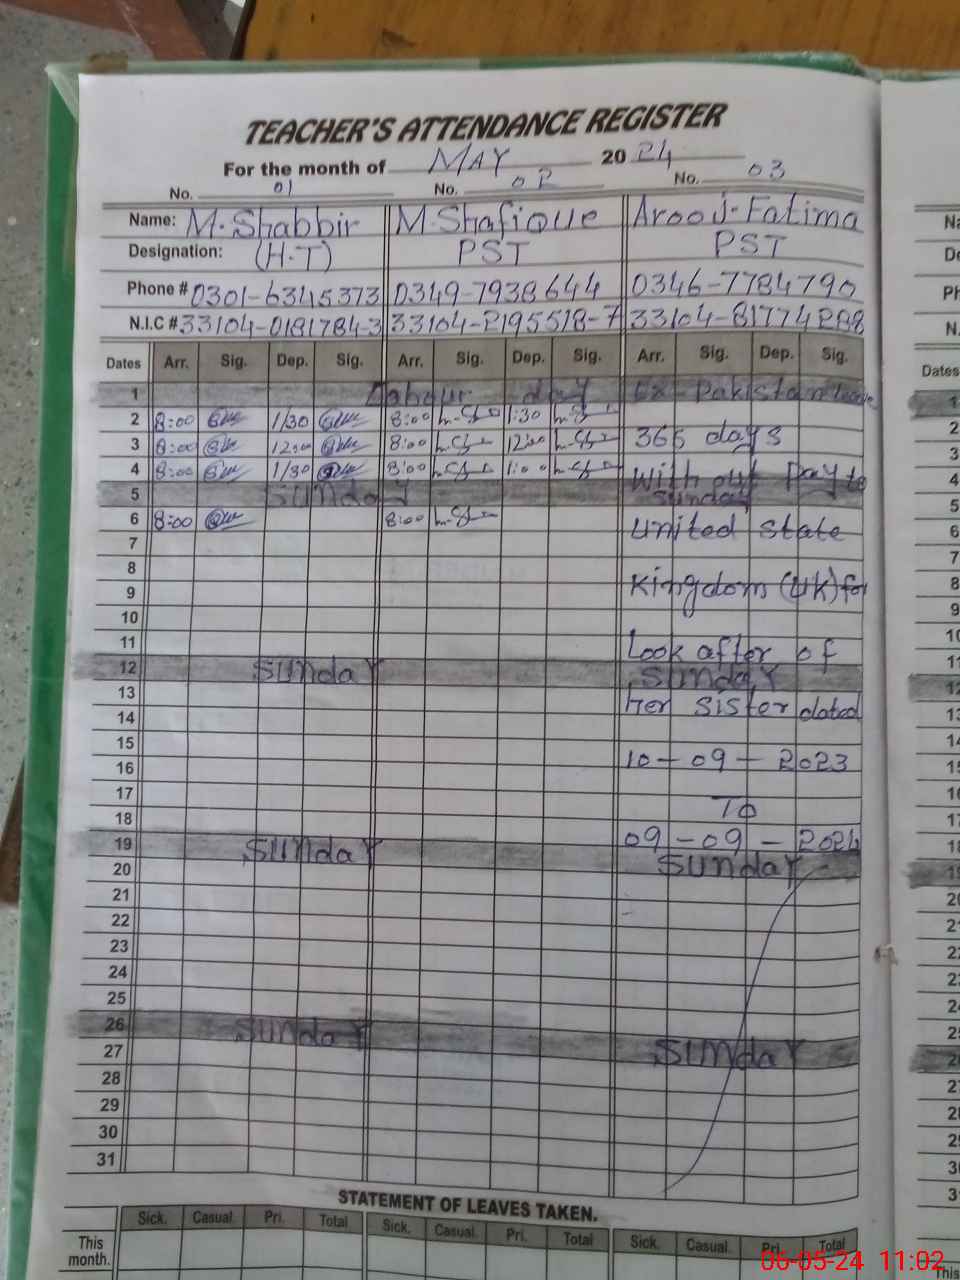 TEACHER'S ATTENDANCE REGISTER
For the month of MAY 2024
No. 01 No. 02 No. 03
Name: M.Shabbir M.Shafique Arooj-Fatima
Designation: (H.T) PST PST
Phone # 0301-6345373 0349-7938644 0346-7784790
N.I.C # 33104-0181784-3 33104-2195518-7 33104-8177428
Dates Arr. Sig. Dep. Sig. Arr. Sig. Dep. Sig. Arr. Sig. Dep. Sig.
1 Labour day Ex-Pakistan leave
2 8:00 1/30 8:00 1:30
3 8:00 12:00 8:00 12:00 365 days
4 8:00 1/30 8:00 1:00 With out Pay to
5 SUNDAY Sunday
6 8:00 8:00 United state
7
8
9 Kingdom (UK) for
10
11 Look after of
12 SUNdaY SUNdaY
13 her sister dated
14
15
16 10-09-2023
17
18 To
19 SUNdaY 09-09-2024
20 SUNdaY
21
22
23
24
25
26 SUNdaY
27 SUNdaY
28
29
30
31
STATEMENT OF LEAVES TAKEN.
Sick. Casual Pri. Total Sick. Casual. Pri. Total Sick. Casual. Pri. Total
This
month.
06-05-24 11:02